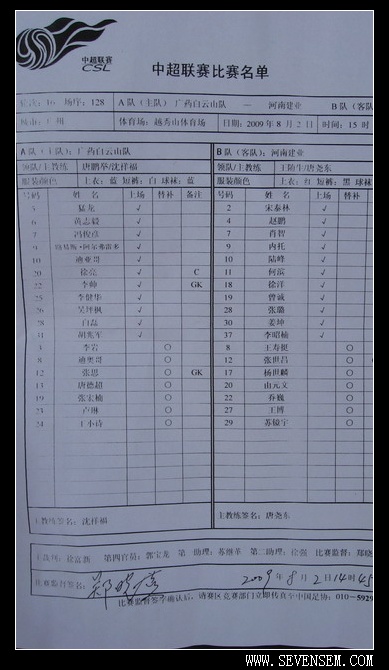 中超联赛
CSL
中超联赛比赛名单
16 场序: 128 A 队 (主队) 广药白云山队 — 河南建业 B 队 (客队)
体育场: 越秀山体育场 日期: 2009 年 8 月 2 日 时间: 15 时
A 队 (主队): 广药白云山队 B 队 (客队): 河南建业
领队/主教练 唐鹏举/沈祥福 领队/主教练 /唐尧东
服装颜色 上衣: 蓝 短裤: 白 球袜: 蓝 服装颜色 上衣: 红 短裤: 黑 球袜:
号码 姓 名 上场 替补 备注 号码 姓 名 上场 替补
√ 2 宋泰林 √
6 黄志毅 √ 4 赵鹏 √
7 冯俊彦 √ 5 肖智 √
9 √ 9 内托 √
10 迪亚哥 √ 10 陆峰 √
20 徐亮 √ C 11 何滨 √
22 李帅 √ GK 18 徐洋 √
25 李健华 √ 19 曾诚 √
26 吴坪枫 √ 28 张璐 √
28 白磊 √ 30 姜坤 √
31 胡兆军 √ 37 李昭楠 √
李岩 ○ 8 王寿挺 ○
8 迪奥哥 ○ 12 张世昌 ○
12 张思 ○ GK 17 杨世麟 ○
13 唐德超 ○ 20 山元文 ○
19 张宏楠 ○ 22 乔巍 ○
23 卢琳 ○ 27 王博 ○
24 王小诗 ○ 29 苏镜宇 ○
主教练签名: 沈祥福 主教练签名: 唐尧东
徐富新 第四官员: 郭宝龙 第一助理: 苏继革 第二助理: 徐强 比赛监督: 郑晓
比赛监督签名 2009 年 8 月 2 日 14 时 45
比赛监督签字确认后, 请赛区竞赛部门立即传真至中国足协: 010-5929
WWW.SEVENSEM.COM